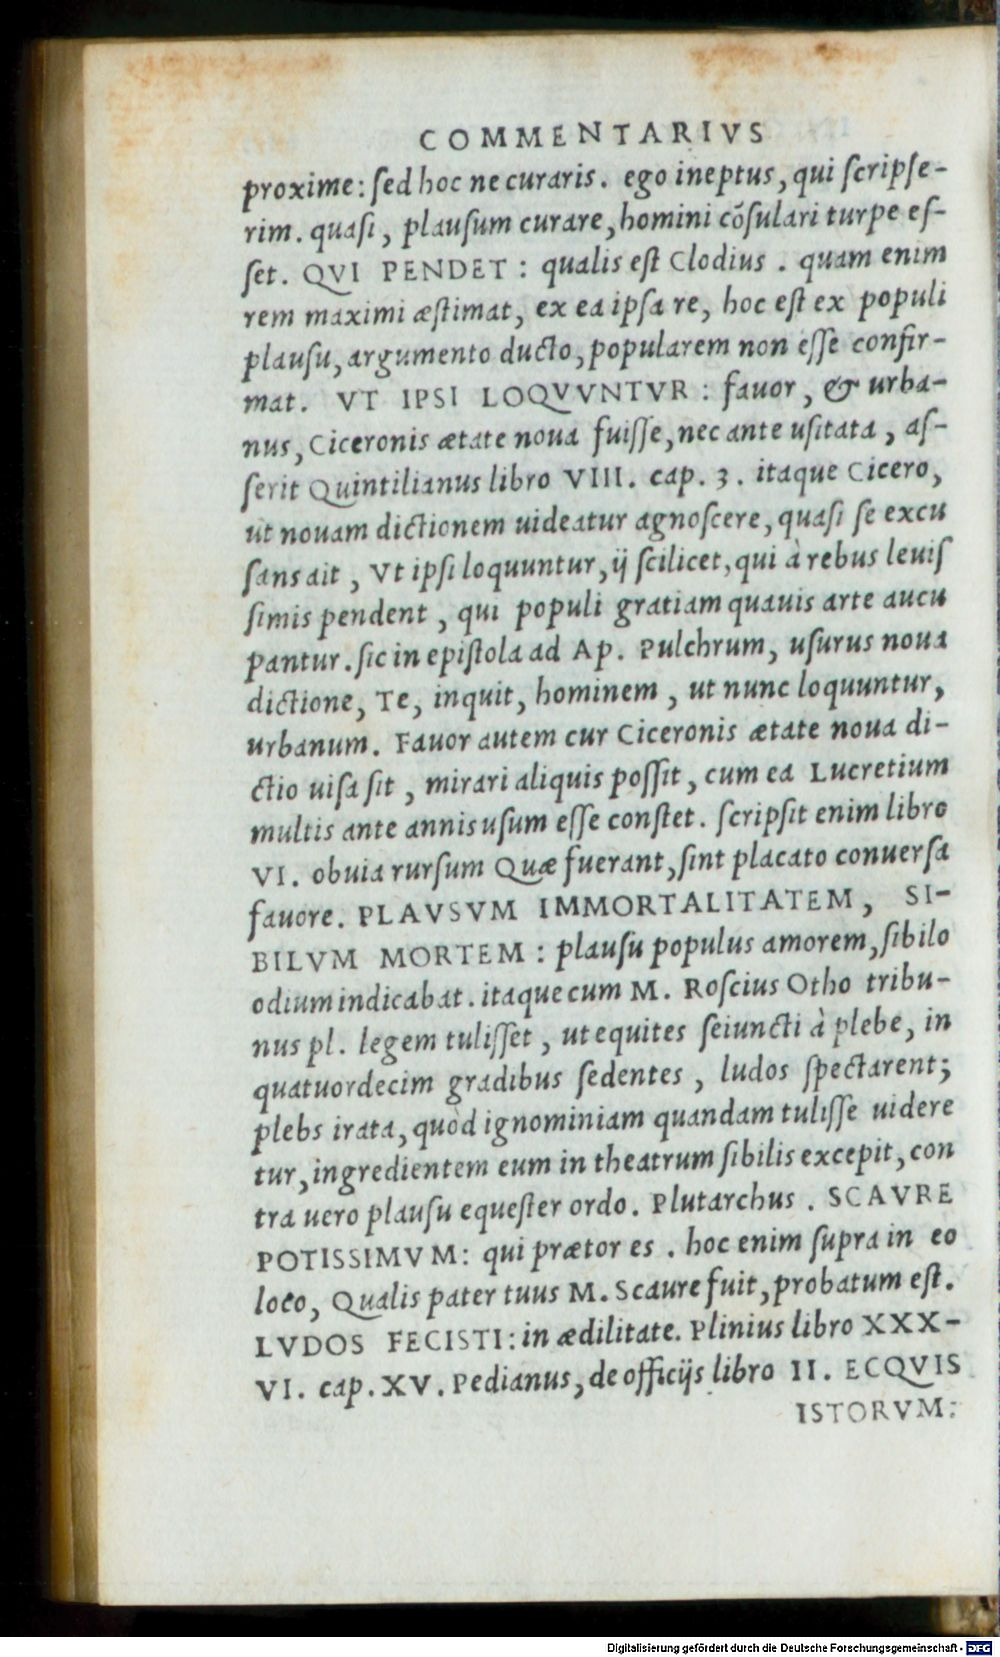 COMMENTARIVS
proxime: sed hoc ne curaris. ego ineptus, qui scripse-
rim. quasi, plausum curare, homini cõsulari turpe es-
set. QVI PENDET: qualis est Clodius. quam enim
rem maximi æstimat, ex ea ipsa re, hoc est ex populi
plausu, argumento ducto, popularem non esse confir-
mat. VT IPSI LOQVVNTVR: fauor, & urba-
nus, Ciceronis ætate noua fuisse, nec ante usitata, as-
serit Quintilianus libro VIII. cap. 3. itaque Cicero,
ut nouam dictionem uideatur agnoscere, quasi se excu
sans ait, Vt ipsi loquuntur, ij scilicet, qui à rebus leuis
simis pendent, qui populi gratiam quauis arte aucu
pantur. sic in epistola ad Ap. Pulchrum, usurus noua
dictione, Te, inquit, hominem, ut nunc loquuntur,
urbanum. Fauor autem cur Ciceronis ætate noua di-
ctio uisa sit, mirari aliquis possit, cum ea Lucretium
multis ante annis usum esse constet. scripsit enim libro
VI. obuia rursum Quæ fuerant, sint placato conuersa
fauore. PLAVSVM IMMORTALITATEM, SI-
BILVM MORTEM: plausu populus amorem, sibilo
odium indicabat. itaque cum M. Roscius Otho tribu-
nus pl. legem tulisset, ut equites seiuncti à plebe, in
quatuordecim gradibus sedentes, ludos spectarent;
plebs irata, quòd ignominiam quandam tulisse uidere
tur, ingredientem eum in theatrum sibilis excepit, con
tra uero plausu equester ordo. Plutarchus. SCAVRE
POTISSIMVM: qui prætor es. hoc enim supra in eo
loco, Qualis pater tuus M. Scaure fuit, probatum est.
LVDOS FECISTI: in ædilitate. Plinius libro XXX-
VI. cap. XV. Pedianus, de officijs libro II. ECQVIS
ISTORVM:
Digitalisierung gefördert durch die Deutsche Forschungsgemeinschaft - DFG